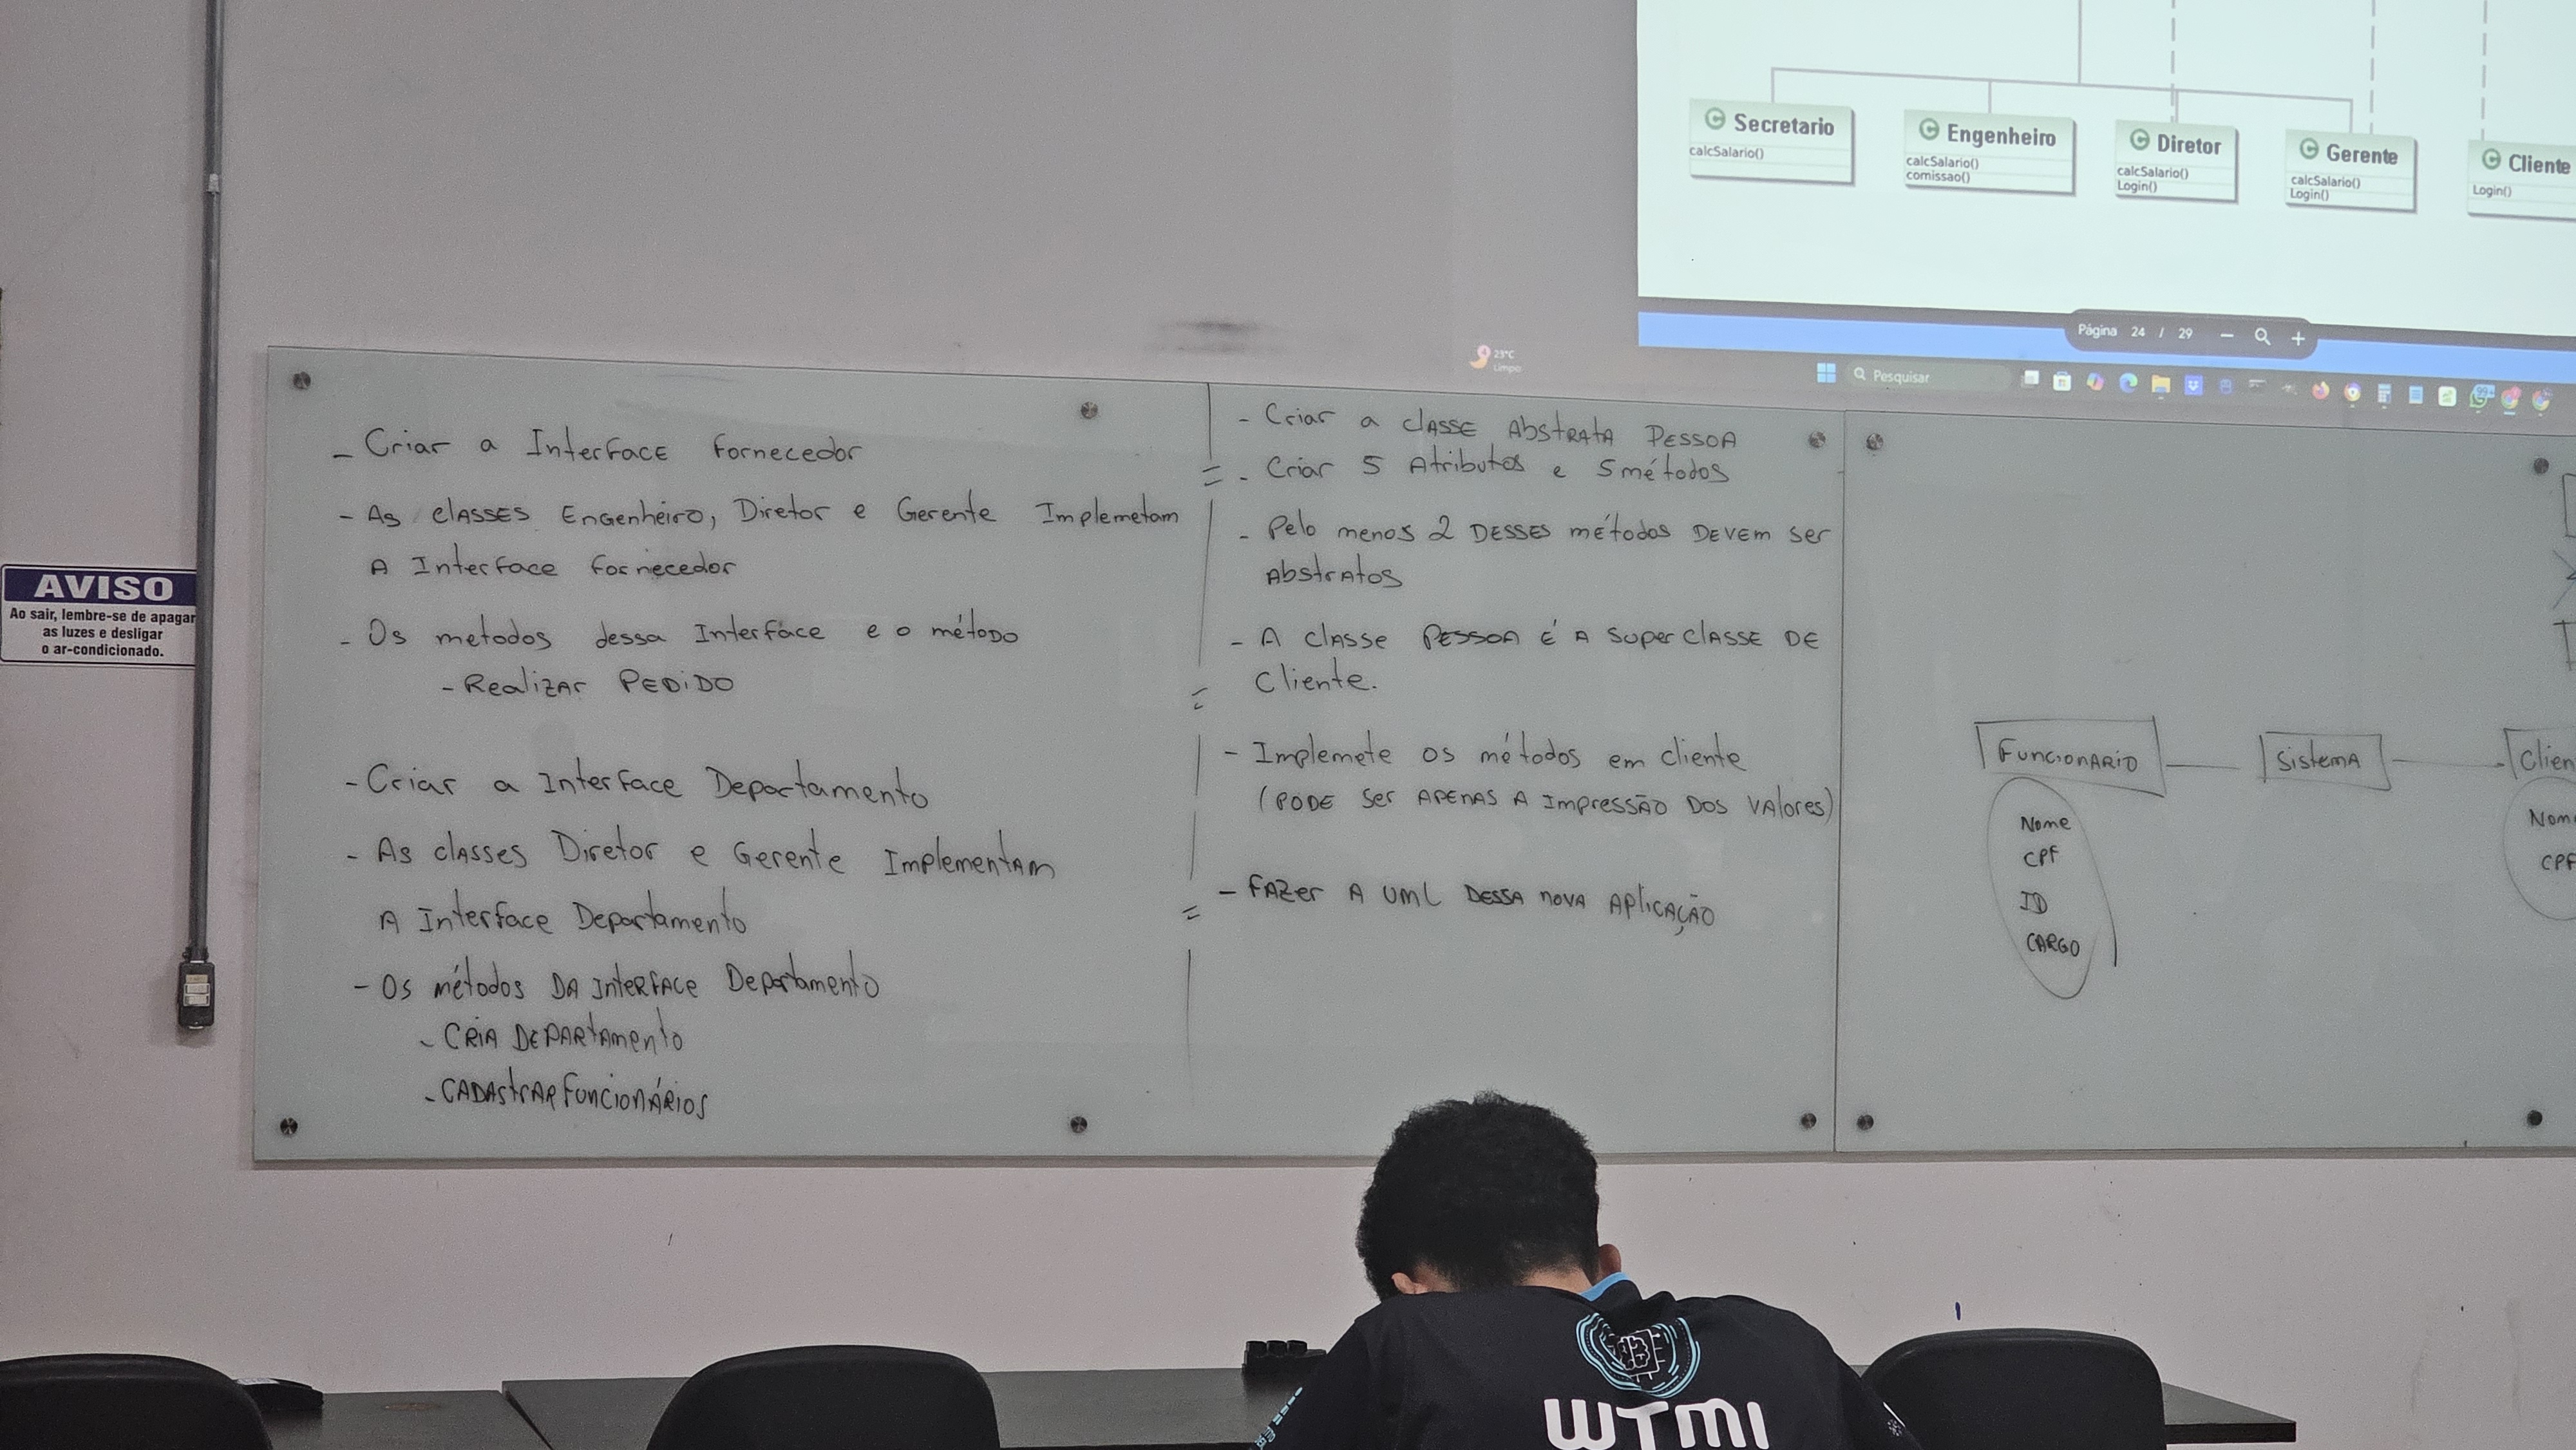 Secretario
calcSalario()
Engenheiro
calcSalario()
comissao()
Diretor
calcSalario()
Login()
Gerente
calcSalario()
Login()
Cliente
Login()
Página 24 / 29
23°C
Limpo
Pesquisar
- Criar a Interface Fornecedor
- As classes Engenheiro, Diretor e Gerente Implemetam
A Interface Fornecedor
- Os metodos dessa Interface e o método
- Realizar PEDIDO
- Criar a Interface Departamento
- As classes Diretor e Gerente Implementam
A Interface Departamento
- Os métodos DA Interface Departamento
- CRIA DEPARtAmento
- CADAstrAR Funcionários
- Criar a classe Abstrata PESSOA
- Criar 5 Atributos e 5 métodos
- Pelo menos 2 DESSES métodos DEVEM ser
Abstratos
- A classe PESSOA É A SUPERCLASSE DE
Cliente.
- Implemete os métodos em cliente
(PODE ser APENAS A Impressão DOS VAlores)
- FAZer A UML DESSA NOVA APlicAÇÃO
Funcionario
Sistema
Nome
CPF
ID
CARGO
CPF
AVISO
Ao sair, lembre-se de apagar
as luzes e desligar
o ar-condicionado.
WTMI